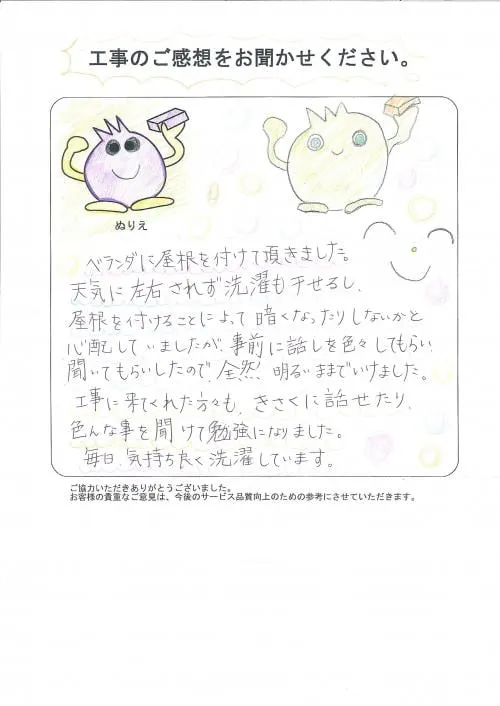 工事のご感想をお聞かせください。
ぬりえ
ベランダに屋根を付けて頂きました。
天気に左右されず洗濯も干せるし、
屋根を付けることによって暗くなったりしないかと
心配していましたが、事前に話しを色々してもらい
聞いてもらいしたので、全然 明るいままでいけました。
工事に来てくれた方々も、きさくに話せたり、
色んな事を聞けて勉強になりました。
毎日、気持ち良く洗濯しています。
ご協力いただきありがとうございました。
お客様の貴重なご意見は、今後のサービス品質向上のための参考にさせていただきます。